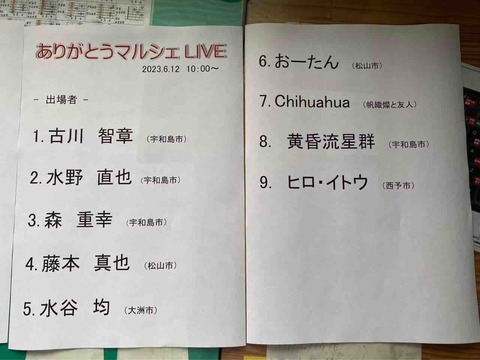 ありがとうマルシェ LIVE
2023.6.12 10:00～
- 出場者 -
1.古川 智章 (宇和島市)
2.水野 直也 (宇和島市)
3.森 重幸 (宇和島市)
4.藤本 真也 (松山市)
5.水谷 均 (大洲市)
6.おーたん (松山市)
7.Chihuahua (帆織燦と友人)
8. 黄昏流星群 (宇和島市)
9. ヒロ・イトウ (西予市)